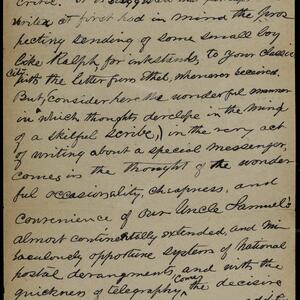 writer at first had in mind the pros-
pecting sending of some small boy
like Ralph, for inkstands, to your classic
city
with the letter from Ethel, whenever received.
But, (consider here the wonderful manner
in which thoughts develope in the mind
of a skilful scribe,) in the very act
of writing about a special messenger,
comes in the thought of the wonder-
ful occasionality, cheapness, and
convenience of our Uncle Samuel's
almost continentally extended, and mi-
raculously opportune system of national
postal derangments, and with the
quickness of telegraphy, comes the decisive